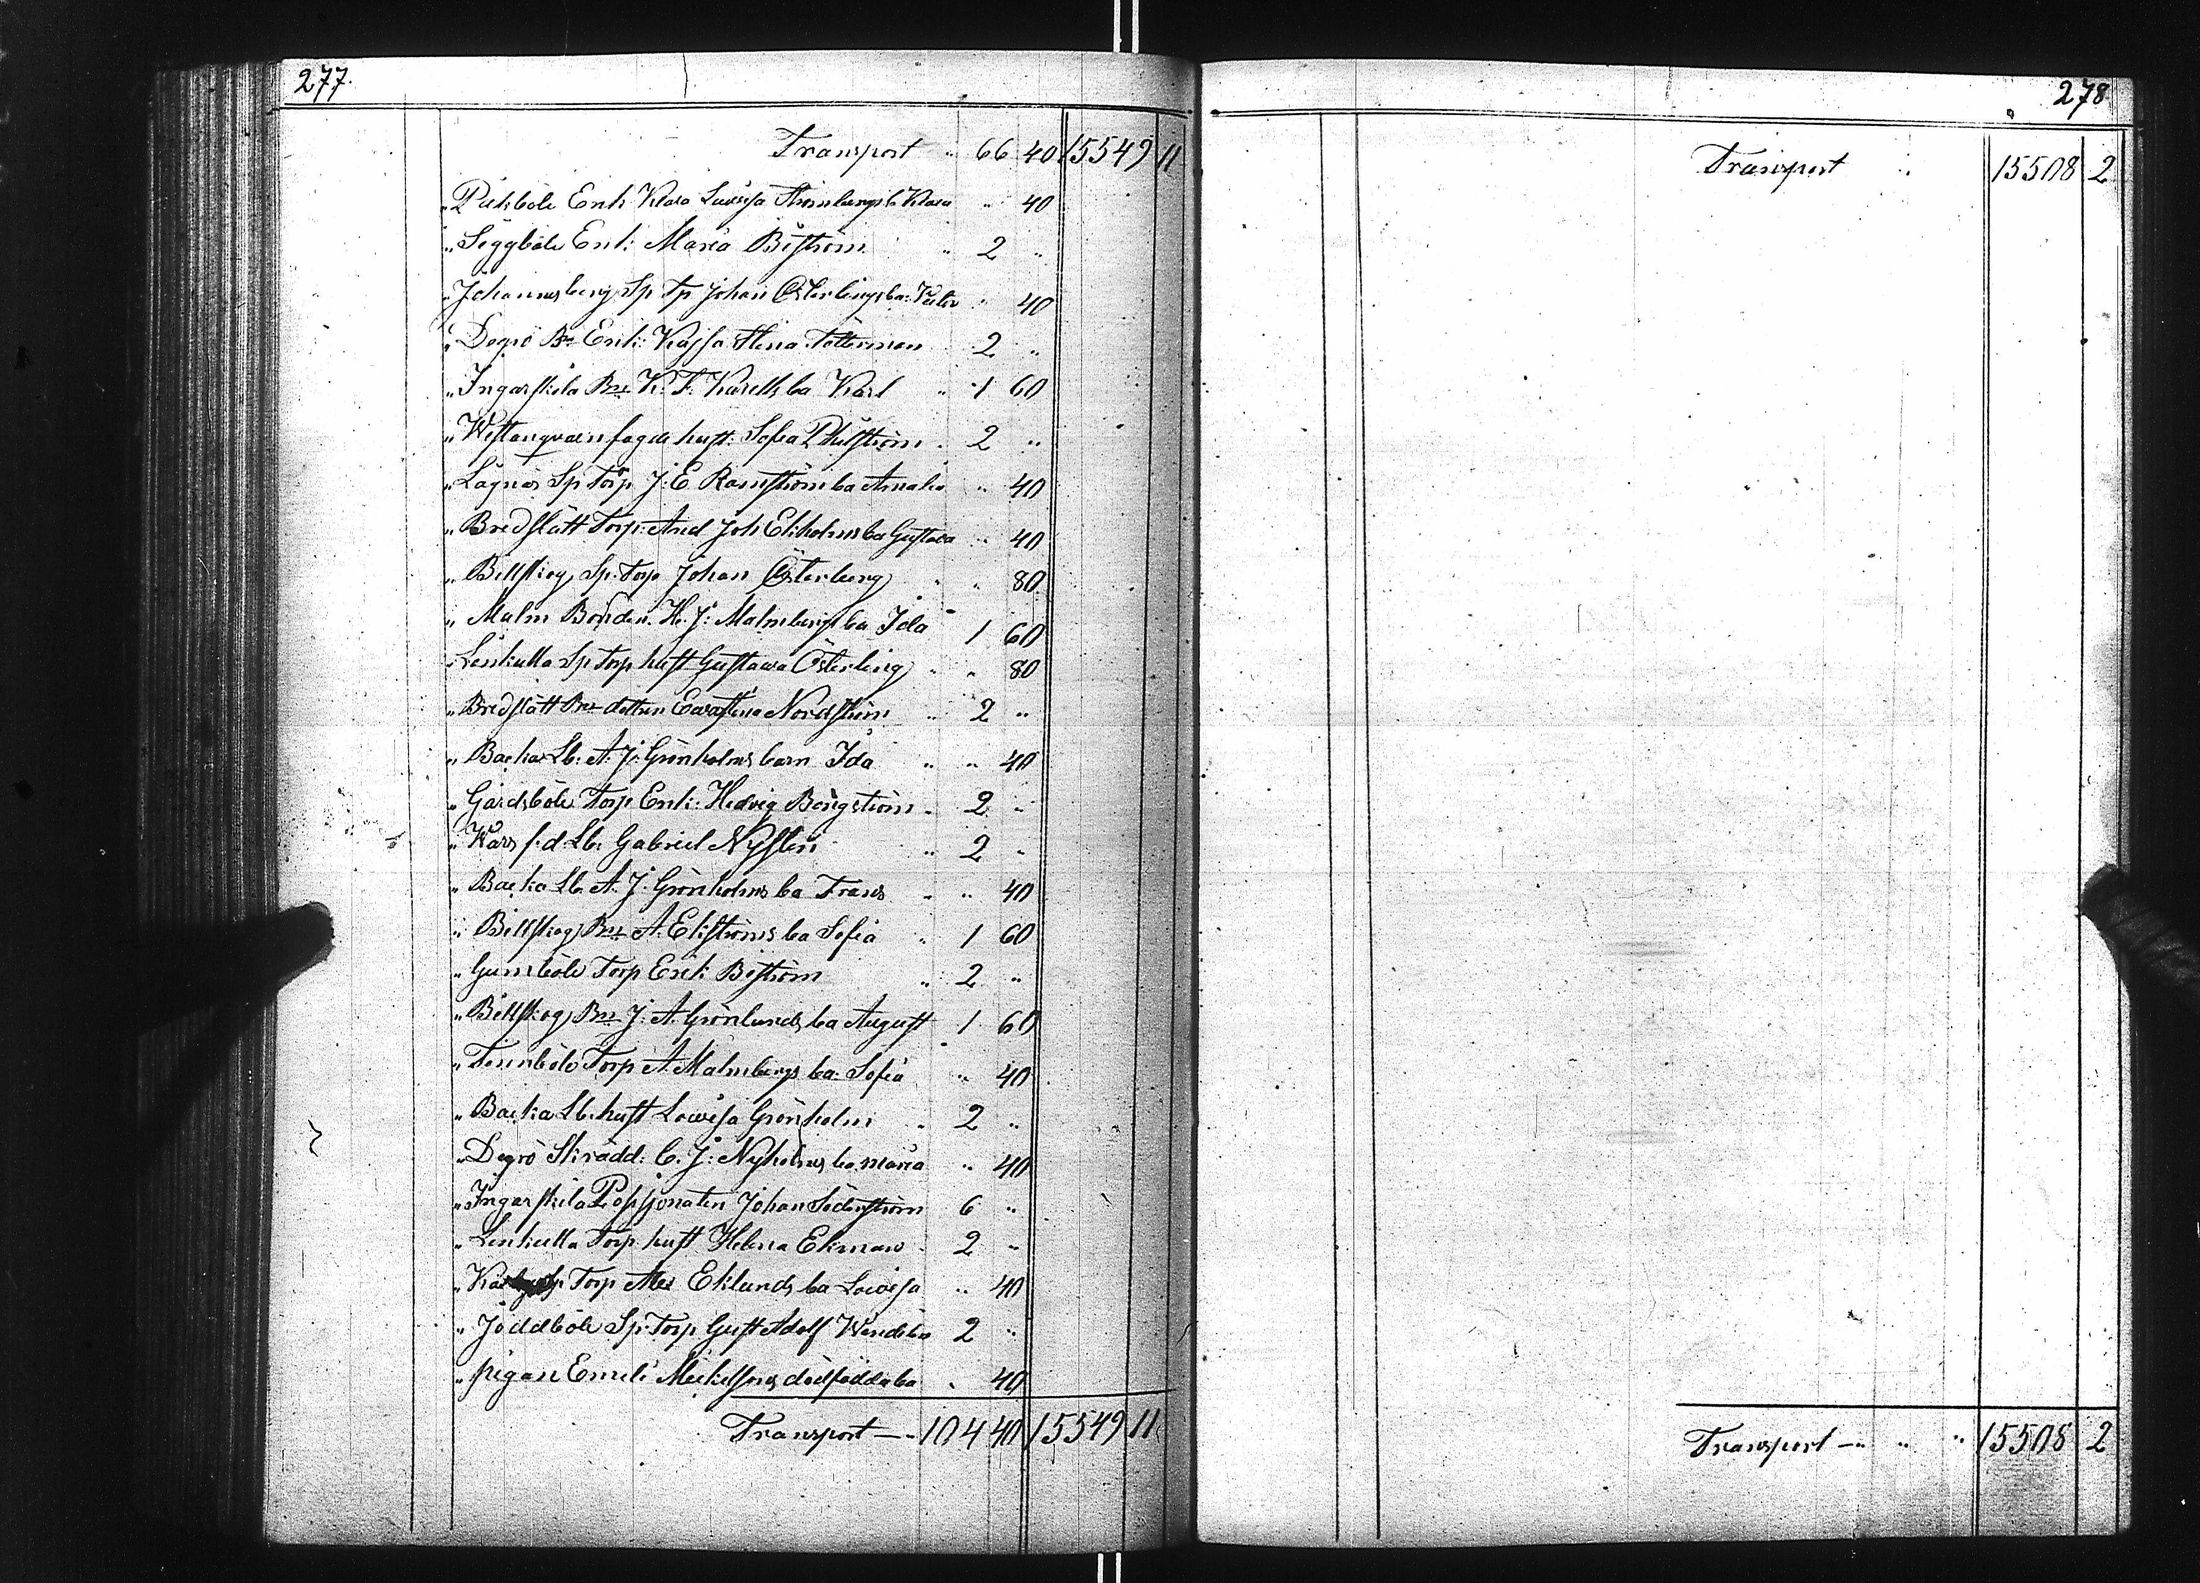 277.
Transport „ 66 40 15549 11
„ Pickböle Enk Klara Lovisa Strömbergs b Klara „ 40
„ Siggböle Enk: Maria Biström „ 2 „
„ Johannesberg Sp Tp Johan Österlings ba: Viktor „ 40
„ Degrö Bn Enk: Kajsa Stina Fetterman 2 „
„ Ingarskila Bn K. F. Karells ba Karl „ 1 60
„ Westanqvarn hust: Sofia 2 „
„ Lågnäs Sp Torp J. E Ramströms ba Amalia „ 40
„ Bredslätt Torp: And Joh Ekholms ba Gustava „ 40
„ Billskog Sp: Torp Johan Österberg „ „ 80
„ Malm Bonden H. J: Malmbergs ba Ida 1 60
„ Lenkulla Sp Torp hust Gustawa Österling „ „ 80
„ Bredslätt Bn dottren Ewastina Nordström „ 2 „
„ Backa Lb: A. J. Grönholms barn Ida „ „ 40
„ Gårdsböle Torp Enk: Hedvig Bergström „ 2 „
„ Wårs f.d. Lb: Gabriel Nystén „ 2 „
„ Backa Lb. A. J. Grönholms ba Frans „ „ 40
„ Billskog Bn A. Ekströms ba Sofia „ 1 60
„ Gumböle Torp Erik Biström „ 2 „
„ Billskog Bn J. A. Grönlunds ba August 1 60
„ Finnböle Torp A. Malmbergs ba: Sofia „ 40
„ Backa Lb: hust Lowisa Grönholm „ 2 „
„ Degrö Skrädd: C. J: Nyholms ba maria „ 40
„ Ingarskila Possjonaten Johan Söderström 6 „
„ Lenkulla Torp hust Helena Ekman 2 „
„ Sp Torp Alex Eklunds ba Lowisa „ 40
„ Joddböle Sp: Torp Gust Adolf 2 „
„ pigan Emeli Mickelssons dödfödda ba „ 40
Transport — „ 104 40 15549 11
278
Transport „ 15508 2
Transport — „ „ „ 15508 2